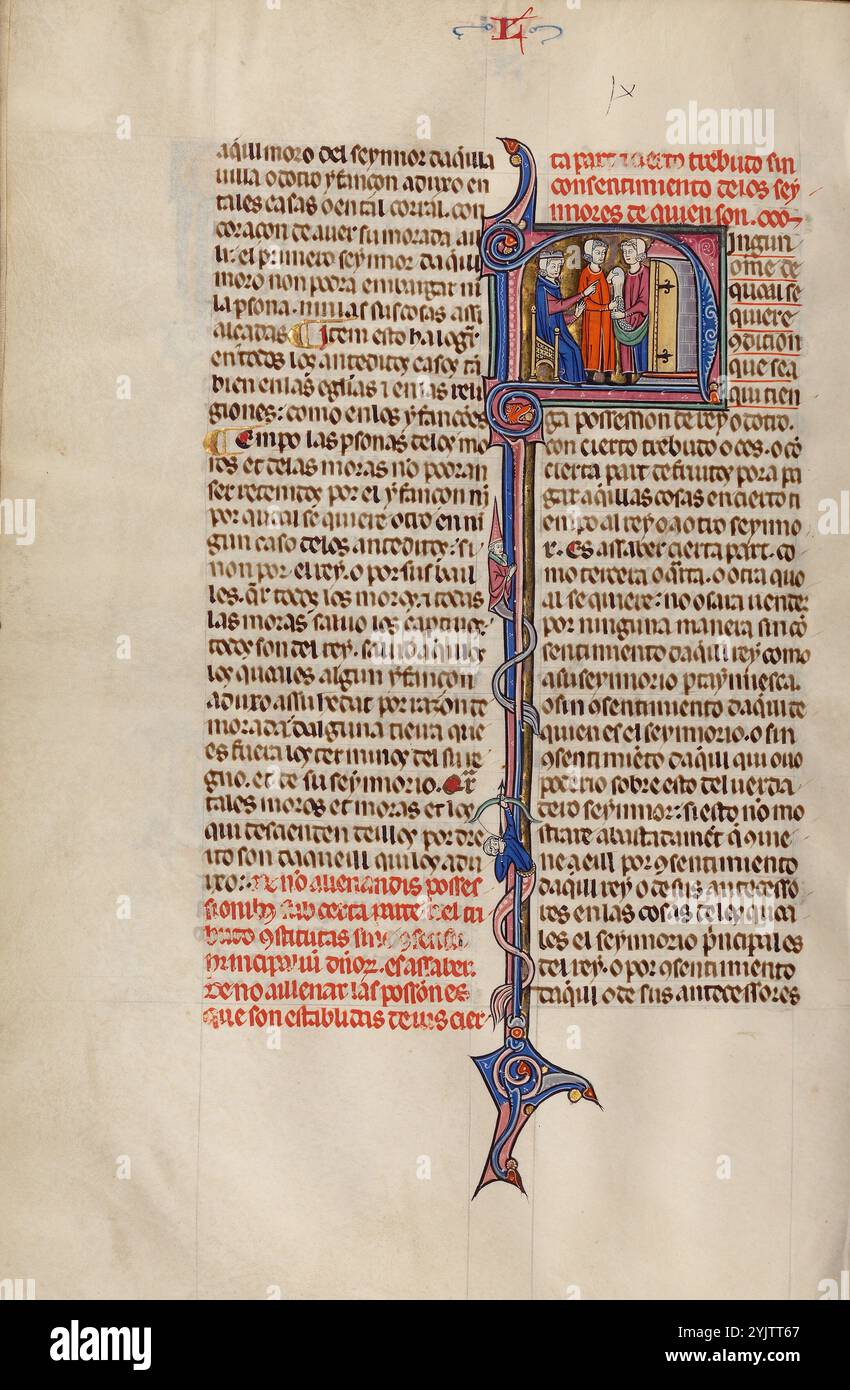 L
aquill moro del seynnor daquilla
uilla o dotro yfançon aduxo en
tales casas o en tal corral. con
coraçon de auer su morada aui
li: el primero seynnor daquill
moro non podra embargar ni
la persona. ni nillas sus cosas assi
aleadas
Item esto ha logar
en todos los anteditos casos tã
bien en las eglias ⁊ en las reli
giones: como en los yfançones
Empo las psonas de los mo
ros et de las moras no podran
ser retenidos por el yfançon ni
por qual se quiere otro en ni
gun caso de los anteditos: si
non por el rey. o por sus bail
les. q̄r todos los moros. ⁊ todas
las moras saluo los captiuos:
todos son del rey. saluo aquillos
los quales algun yfançon
aduxo assu hedat por razon de
morada dalguna tierra que
es fuera los terminos del su re
gno. et de su seynnorio. Q̄r
tales moros et moras et los
qui descienden deillos por dre
ito son daqueill qui los adu
xo:
De no alienandis posses
sionibus sub certa parte uel tri
buto 9stitutas sine 9sensu
principaliũ dñoꝝ. es assaber.
De no allenar las possiones
que son establidas de ius cier
ta part ⁊ cierto trebuto sin
consentimiento de los sey
nnores de quien son.
Ningun
ome de
qual se
quiere
9dicion
que sea
qui tien
ga possession de rey o dotro.
con cierto trebuto o ces. o cõ
cierta part de fruitos pora pa
gar aquillas cosas en cierto ti
empo al rey o a otro seynno
r. Es assaber cierta part. co
mo tercera o q̃rta. o otra quo
al se quiere: no osara uender
por ninguna manera sin cõ
sentimiento daquil rey como
a su seynnorio ptaynnesca.
o sin 9sentimiento daqui de
quien es el seynnorio. o sin
9sentimiẽto daqui qui ouo
poderio sobre esto del uerda
dero seynnor: si esto nõ mo
strare abastadamẽt q̃ 9uie
ne a eill por 9sentimiento
daquil rey o de sus antecesso
res en las cosas de los qua
les el seynnorio p̃ncipal es
del rey. o por 9sentimiento
daqui o de sus antecessores
alamy
Image ID: 2YJTT67
www.alamy.com